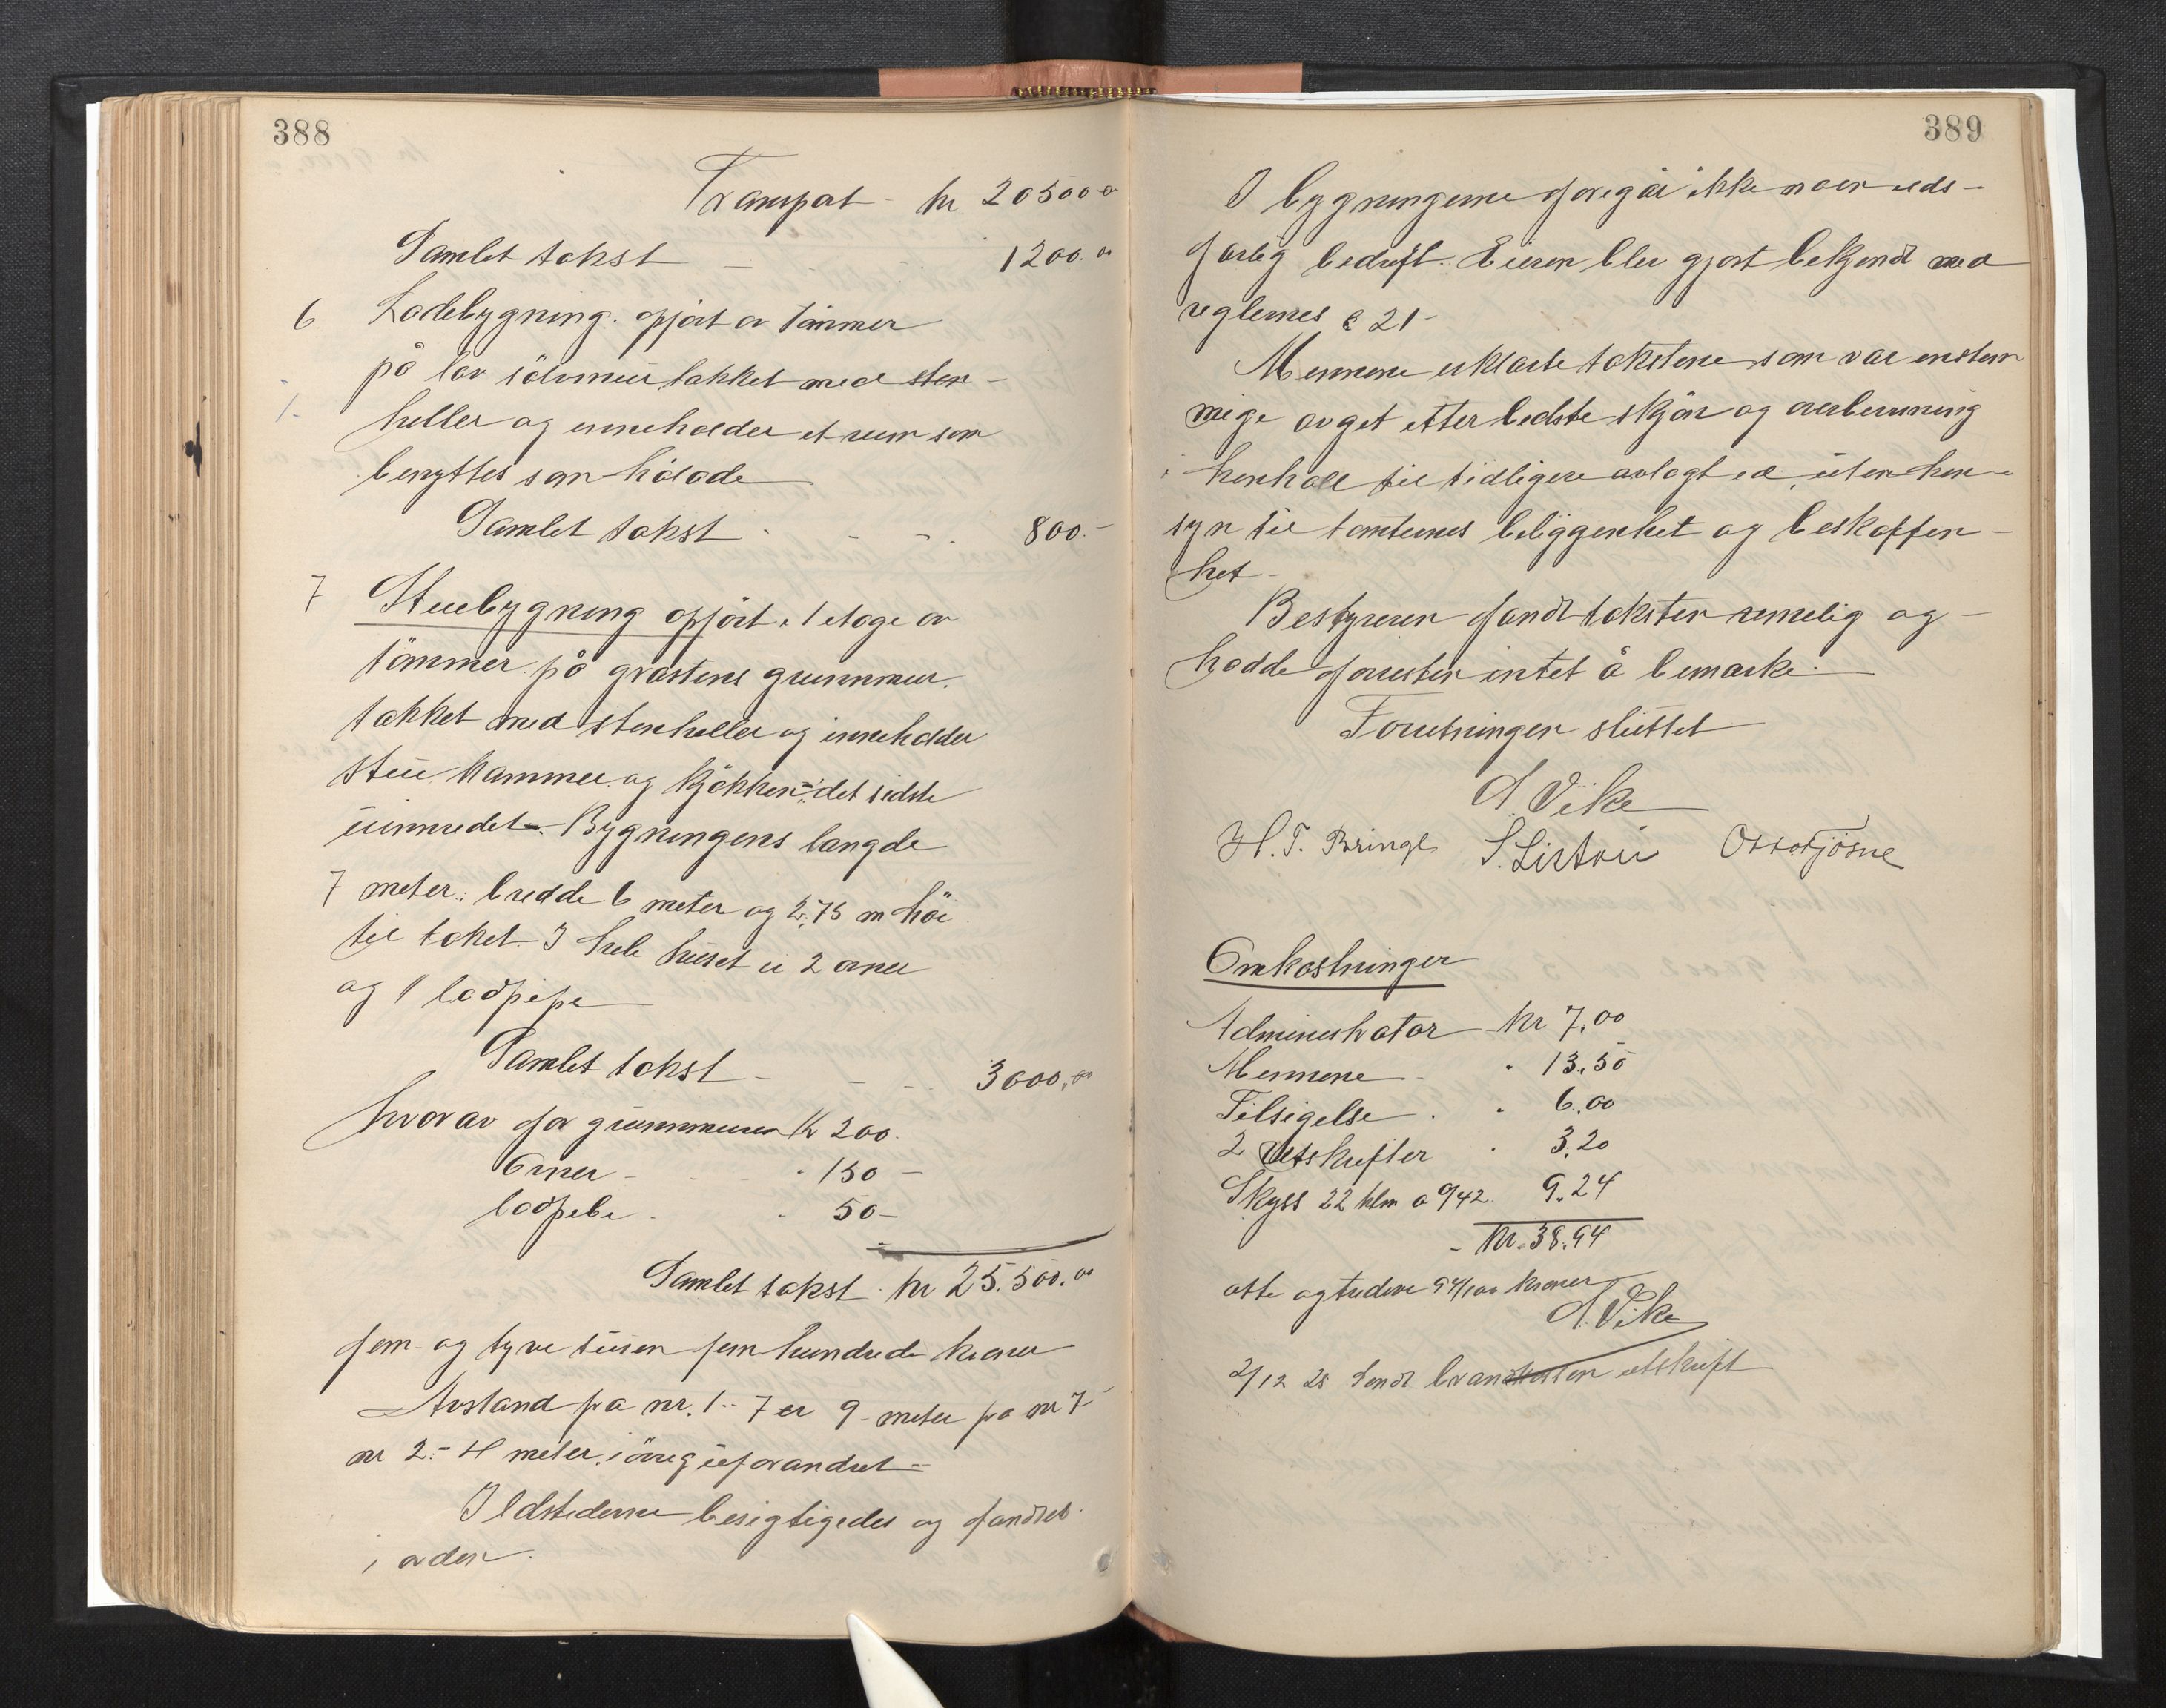 388
Transport - kr 20500 00
Samlet takst - 1200.00
6 Ladebygning. opført av tømmer
på lav sålemur, takket med sten-
1.
heller og inneholder et rum som
benyttes som hølade
Samlet takst - - - 800.-
7 Stuebygning opført i 1 etage av
tømmer på gråstens grunnmur.
takket med stenheller og inneholder
stue kammer og kjøkken - det sidste
uinnredet. Bygningens længde
7 meter: bredde 6 meter og 2,75 m høi
til taket. I hele huset er 2 ovner
og 1 lodpipe
Samlet takst - - - 3000,00
hvorav for grunnmuren Kr 200.
Ovner - " 150 -
lodpibe - " 50 -
Samlet takst kr 25.500.00
fem- og tyve tusen fem hundrede kroner
Avstand fra nr. 1 - 7 er 9 meter fra nr 7
nr 2 - 4 meter, i øvrig uforandret -
Ildstederne besigtigedes og fandtes
i orden.
389
I bygningerne foregår ikke noen ilds-
farlig bedrift. Eieren blev gjort bekjendt med
reglernes § 21-
Mennene erklærte takstene som var enstem
mige avget efter bedste skjøn og overbevisning
i henhold til tidligere avlagt ed, uten hen-
syn til tomternes beliggenhet og beskaffen-
het -
Bestyreren fandt taksten rimelig og -
hadde forresten intet å bemærke.
Forretningen sluttet
A. Vike
H. T. Bringe S. Listou
Omkostninger
Administrator Kr 7,00
Mennene - " 13.50
Tilsigelse . " 6.00
2 Utskrifter " 3.20
Skyss 22 klm a 0/42 9.24
- Kr. 38.94
otte og tredive 94/100 kroner
A. Vike
2/12 28 Sendt utskrift